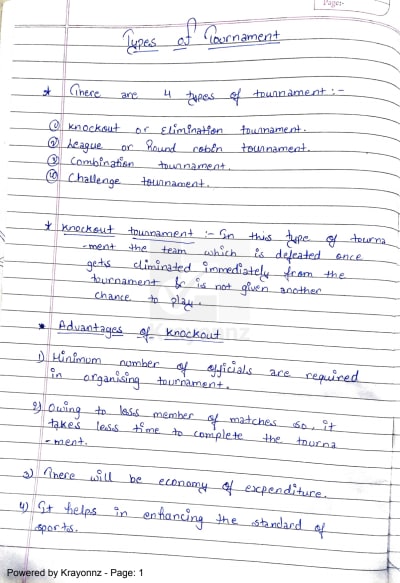 Page:
Types of Tournament
* There are 4 types of tournament :-
① Knockout or Elimination tournament.
② League or Round robin tournament.
③ Combination tournament.
④ Challenge tournament.
* Knockout tournament :- In this type of tourna
-ment the team which is defeated once
gets eliminated immediately from the
tournament & is not given another
chance to play.
* Advantages of knockout
1) Minimum number of officials are required
in organising tournament.
2) Owing to less member of matches so, it
takes less time to complete the tourna
-ment.
3) There will be economy of expenditure.
4) It helps in enhancing the standard of
sports.
Krayonnz
Powered by Krayonnz - Page: 1